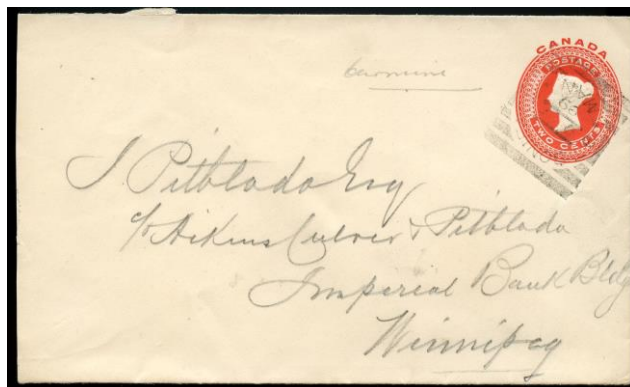 CANADA
POSTAGE
TWO CENTS
I Pitblado Esq
c/o Aikins Culver & Pitblado
Imperial Bank Bldg
Winnipeg